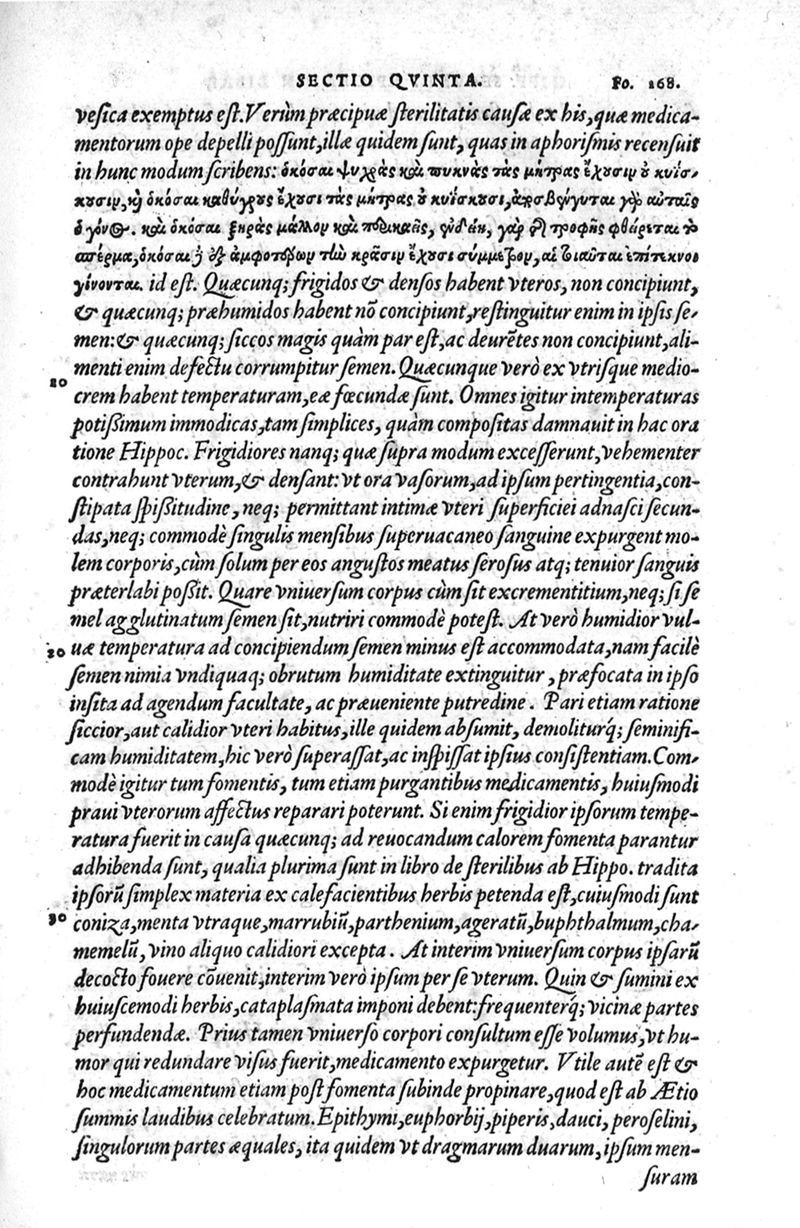 SECTIO QVINTA. Fo. 168.
vesica exemptus est. Verùm præcipuæ sterilitatis causæ ex his, quæ medica-
mentorum ope depelli possunt, illæ quidem sunt, quas in aphorismis recensuit
in hunc modum scribens: ὁκόσαι ψυχρὰς καὶ πυκνὰς τὰς μήτρας ἔχουσιν ὀ κυΐσ-
κουσιν, καὶ ὁκόσαι καθύγρους ἔχουσι τὰς μήτρας ὀ κυΐσκουσι, ἀποσβέννυται γὰρ αὐταῖς
ὁ γόνος. καὶ ὁκόσαι ξηρὰς μᾶλλον καὶ
σπέρμα, ὁκόσαι δὲ ἐξ ἀμφοτέρων τὴν κρᾶσιν ἔχουσι σύμμετρον, αἱ τοιαῦται ἐπίτεκνοι
γίνονται. id est. Quæcunq; frigidos & densos habent vteros, non concipiunt,
& quæcunq; præhumidos habent nō concipiunt, restinguitur enim in ipsis se-
men: & quæcunq; siccos magis quàm par est, ac deurētes non concipiunt, ali-
menti enim defectu corrumpitur semen. Quæcunque verò ex vtrisque medio-
20
crem habent temperaturam, eæ fœcundæ sunt. Omnes igitur intemperaturas
potißimum immodicas, tam simplices, quàm compositas damnauit in hac ora
tione Hippoc. Frigidiores nanq; quæ supra modum excesserunt, vehementer
contrahunt vterum, & densant: vt ora vasorum, ad ipsum pertingentia, con-
stipata spißitudine, neq; permittant intimæ vteri superficiei adnasci secun-
das, neq; commodè singulis mensibus superuacaneo sanguine expurgent mo-
lem corporis, cùm solum per eos angustos meatus serosus atq; tenuior sanguis
præterlabi poßit. Quare vniuersum corpus cùm sit excrementitium, neq; si se
mel agglutinatum semen sit, nutriri commodè potest. At verò humidior vul-
20 uæ temperatura ad concipiendum semen minus est accommodata, nam facilè
semen nimia vndiquaq; obrutum humiditate extinguitur, præfocata in ipso
insita ad agendum facultate, ac præueniente putredine. Pari etiam ratione
siccior, aut calidior vteri habitus, ille quidem absumit, demoliturq́; seminifi-
cam humiditatem, hic verò superassat, ac inspissat ipsius consistentiam. Com-
modè igitur tum fomentis, tum etiam purgantibus medicamentis, huiusmodi
praui vterorum affectus reparari poterunt. Si enim frigidior ipsorum tempe-
ratura fuerit in causa quæcunq; ad reuocandum calorem fomenta parantur
adhibenda sunt, qualia plurima sunt in libro de sterilibus ab Hippo. tradita
ipsorū simplex materia ex calefacientibus herbis petenda est, cuiusmodi sunt
30 coniza, menta vtraque, marrubiū, parthenium, ageratū, buphthalmum, cha-
memelū, vino aliquo calidiori excepta. At interim vniuersum corpus ipsarū
decocto fouere cōuenit, interim verò ipsum per se vterum. Quin & sumini ex
huiuscemodi herbis, cataplasmata imponi debent: frequenterq́; vicinæ partes
perfundendæ. Prius tamen vniuerso corpori consultum esse volumus, vt hu-
mor qui redundare visus fuerit, medicamento expurgetur. Vtile autē est &
hoc medicamentum etiam post fomenta subinde propinare, quod est ab Ætio
summis laudibus celebratum. Epithymi, euphorbij, piperis, dauci, peroselini,
singulorum partes æquales, ita quidem vt dragmarum duarum, ipsum men-
suram